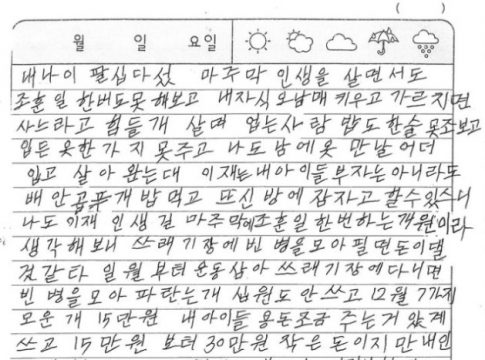 ( )
월 일 요일
내나이 팔십다섯 마주막 인생을 살면서도
조훈일 한버도못 해보고 내자식오남매 키우고 가르지면
사느라고 힘들게 살며 업는사람 밥도한술 못조보고
입든 옷한가지 못주고 나도 남에옷 만날어더
입고 살아 완는대 이재는 내아이들부자는아니라도
배안곱푸개 밥먹고 뜨신 방에 잠자고 할수있스니
나도 이재 인생 길 마주막에조훈일한번하는개원이라
생각해보니 쓰래기장에빈 병을모아 필면돈이댈
것같다 일월 부터 운동삼아 쓰래기장에다니면
빈 병을모아 파란는개 십원도 안쓰고 12월 7가지
모운개 15만원 내아이들 용돈조금 주는거 았계
쓰고 15만원 부터 30만원 작은돈이지만 내인